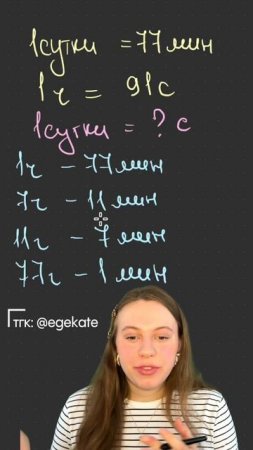 1сутки = 77 мин
1ч = 91с
1сутки = ? с
1ч - 77 мин
7ч - 11 мин
11ч - 7 мин
77ч - 1 мин
ТГК: @egekate